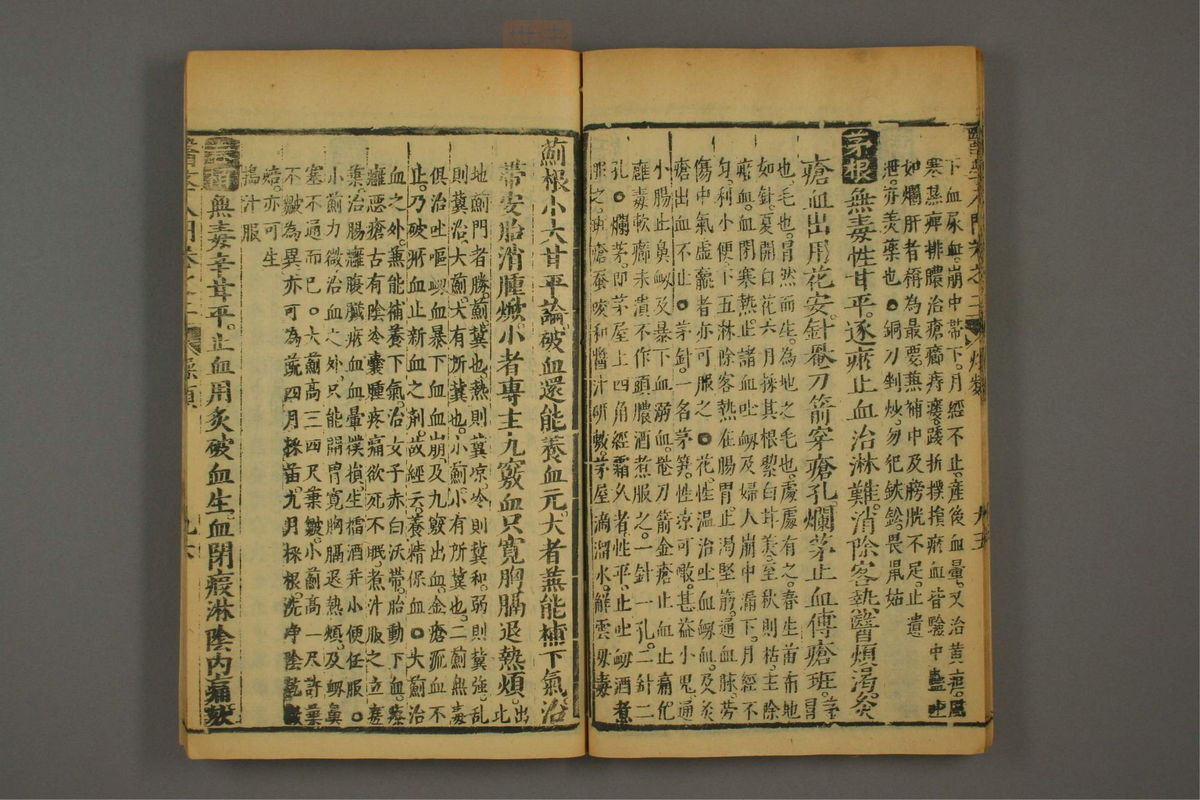 下血尿血。崩中帶下。月經不止。產後血暈。又治黃疸。風
寒濕痺排膿治瘡癤痔瘻。踠折撲損瘀血皆驗中
如爛肝者稱為最要無補中及膀胱不足。止遺
泄。亦美藥也○銅刀剉炒。勿犯鐵鉛畏鼠姑
茅根無毒性甘平。逐瘀止血治淋難。消除客熱瞖煩渴。灸
瘡血出用花安。針卷刀箭穿瘡孔爛茅止血傅瘡班
也。毛也。冒然而生。為地之毛也。處處有之。春生苗布地
如針。夏開白花六月採其根黎白甘美。至秋則枯。主除
瘀血。血閉寒熱。止諸血吐衂及婦人崩中漏下。月經不
勻。利小便下五淋除客熱在腸胃。止渴堅筋。通血脉。勞
傷中氣虛羸者亦可服之○花。性溫治吐血衂血。及灸
瘡出血不止○茅針。一名茅笋。性凉可噉。甚益小兒通
小腸止鼻衂及暴下血溺血。卷刀箭金瘡止血痛
癰毒軟癤未潰不作頭膿酒煮服之。一針一孔。二針二
孔。○爛茅。即茅屋上四角經霜久者。性平。止吐衂酒煮
服之。蠶瘡和醬汁研敷。茅屋滴溜水解雲母毒
薊根小大甘平論。破血還能養血元。大者兼能補下氣。治
帶安胎消腫焮。小者專主九竅血只寬胸膈退熱煩
地薊門者勝。薊冀也。熱則冀凉。冷則冀和。弱則冀強。亂
則冀治。大薊。大有所冀也。小薊。小有所冀也。二薊無毒
俱治吐嘔衂血暴下血血崩及九竅出血。金瘡血不
止。乃破瘀血止新血之劑。故經云。養精保血○大薊治
血之外。兼能補養下氣治女子赤白沃帶。胎動下血。
癰惡瘡古有陰冷囊腫疼痛欲死不眠。煮汁服之立瘥
葉。治腸癰腹臟瘀血血暈撲損。生擂酒并小便任服○
小薊力微治血之外。只能調胃寬胸膈退熱煩及衂鼻
塞不通而已。○大薊高三四尺葉皺。小薊高一尺許葉
不皺為異。亦可為蔬四月採苗。九月採根。洗净陰乾
亦可生
搗汁服
無毒辛甘平。止血用炙破血生。血閉瘕淋陰內痛